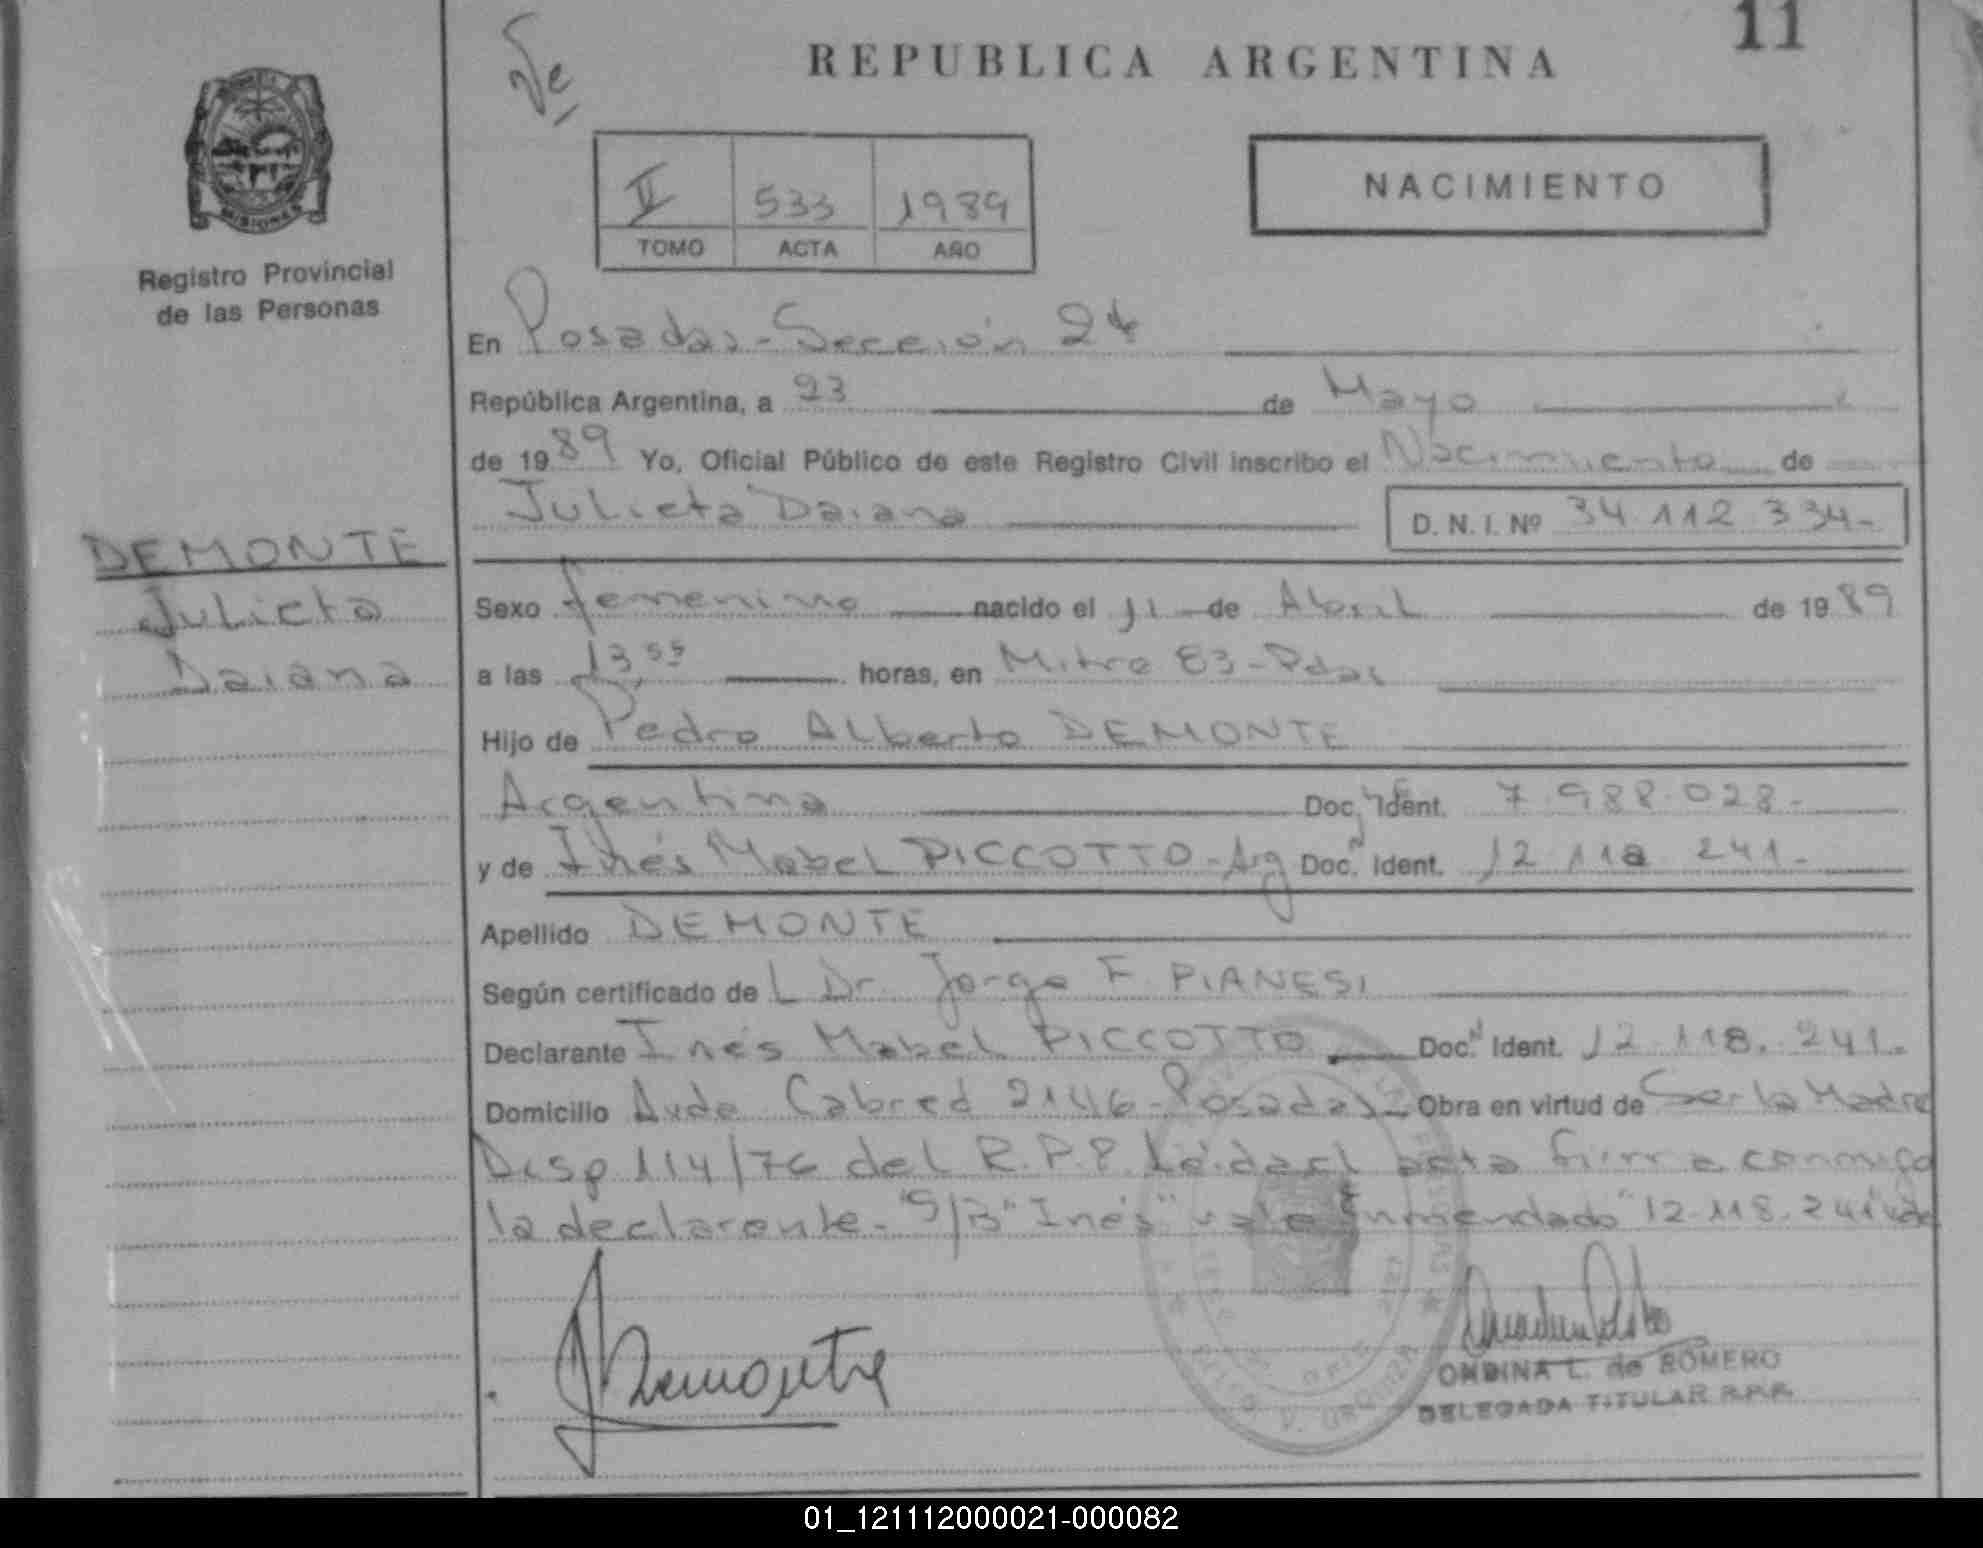 11
REPUBLICA ARGENTINA
NACIMIENTO
II 533 1989
TOMO ACTA AÑO
MISIONES
Registro Provincial
de las Personas
En Posadas - Sección 2da
República Argentina, a 23 de Mayo
de 1989 Yo, Oficial Público de este Registro Civil inscribo el Nacimiento de
Julieta Daiana D. N. I. Nº 34.112.334-
DEMONTE
Julieta
Daiana
Sexo femenino nacido el 11 de Abril de 1989
a las 13,55 horas, en Mitre 83 - Pdas
Hijo de Pedro Alberto DEMONTE
Argentina Doc. Ident. 7.988.028-
y de Inés Mabel PICCOTTO - Arg Doc. Ident. 12.118.241-
Apellido DEMONTE
Según certificado de L Dr. Jorge F. PIANESI
Declarante Inés Mabel PICCOTTO Doc. Ident. 12.118.241-
Domicilio Avda Cabred 2146 - Posadas - Obra en virtud de Ser la Madre
Disp 114/76 del R.P.P. Leida el acta firma conmigo
la declarante - S/B "Inés" vale Enmendado "12.118.241" vale
Demonte
ONDINA L. de ROMERO
DELEGADA TITULAR R.P.P.
01_121112000021-000082